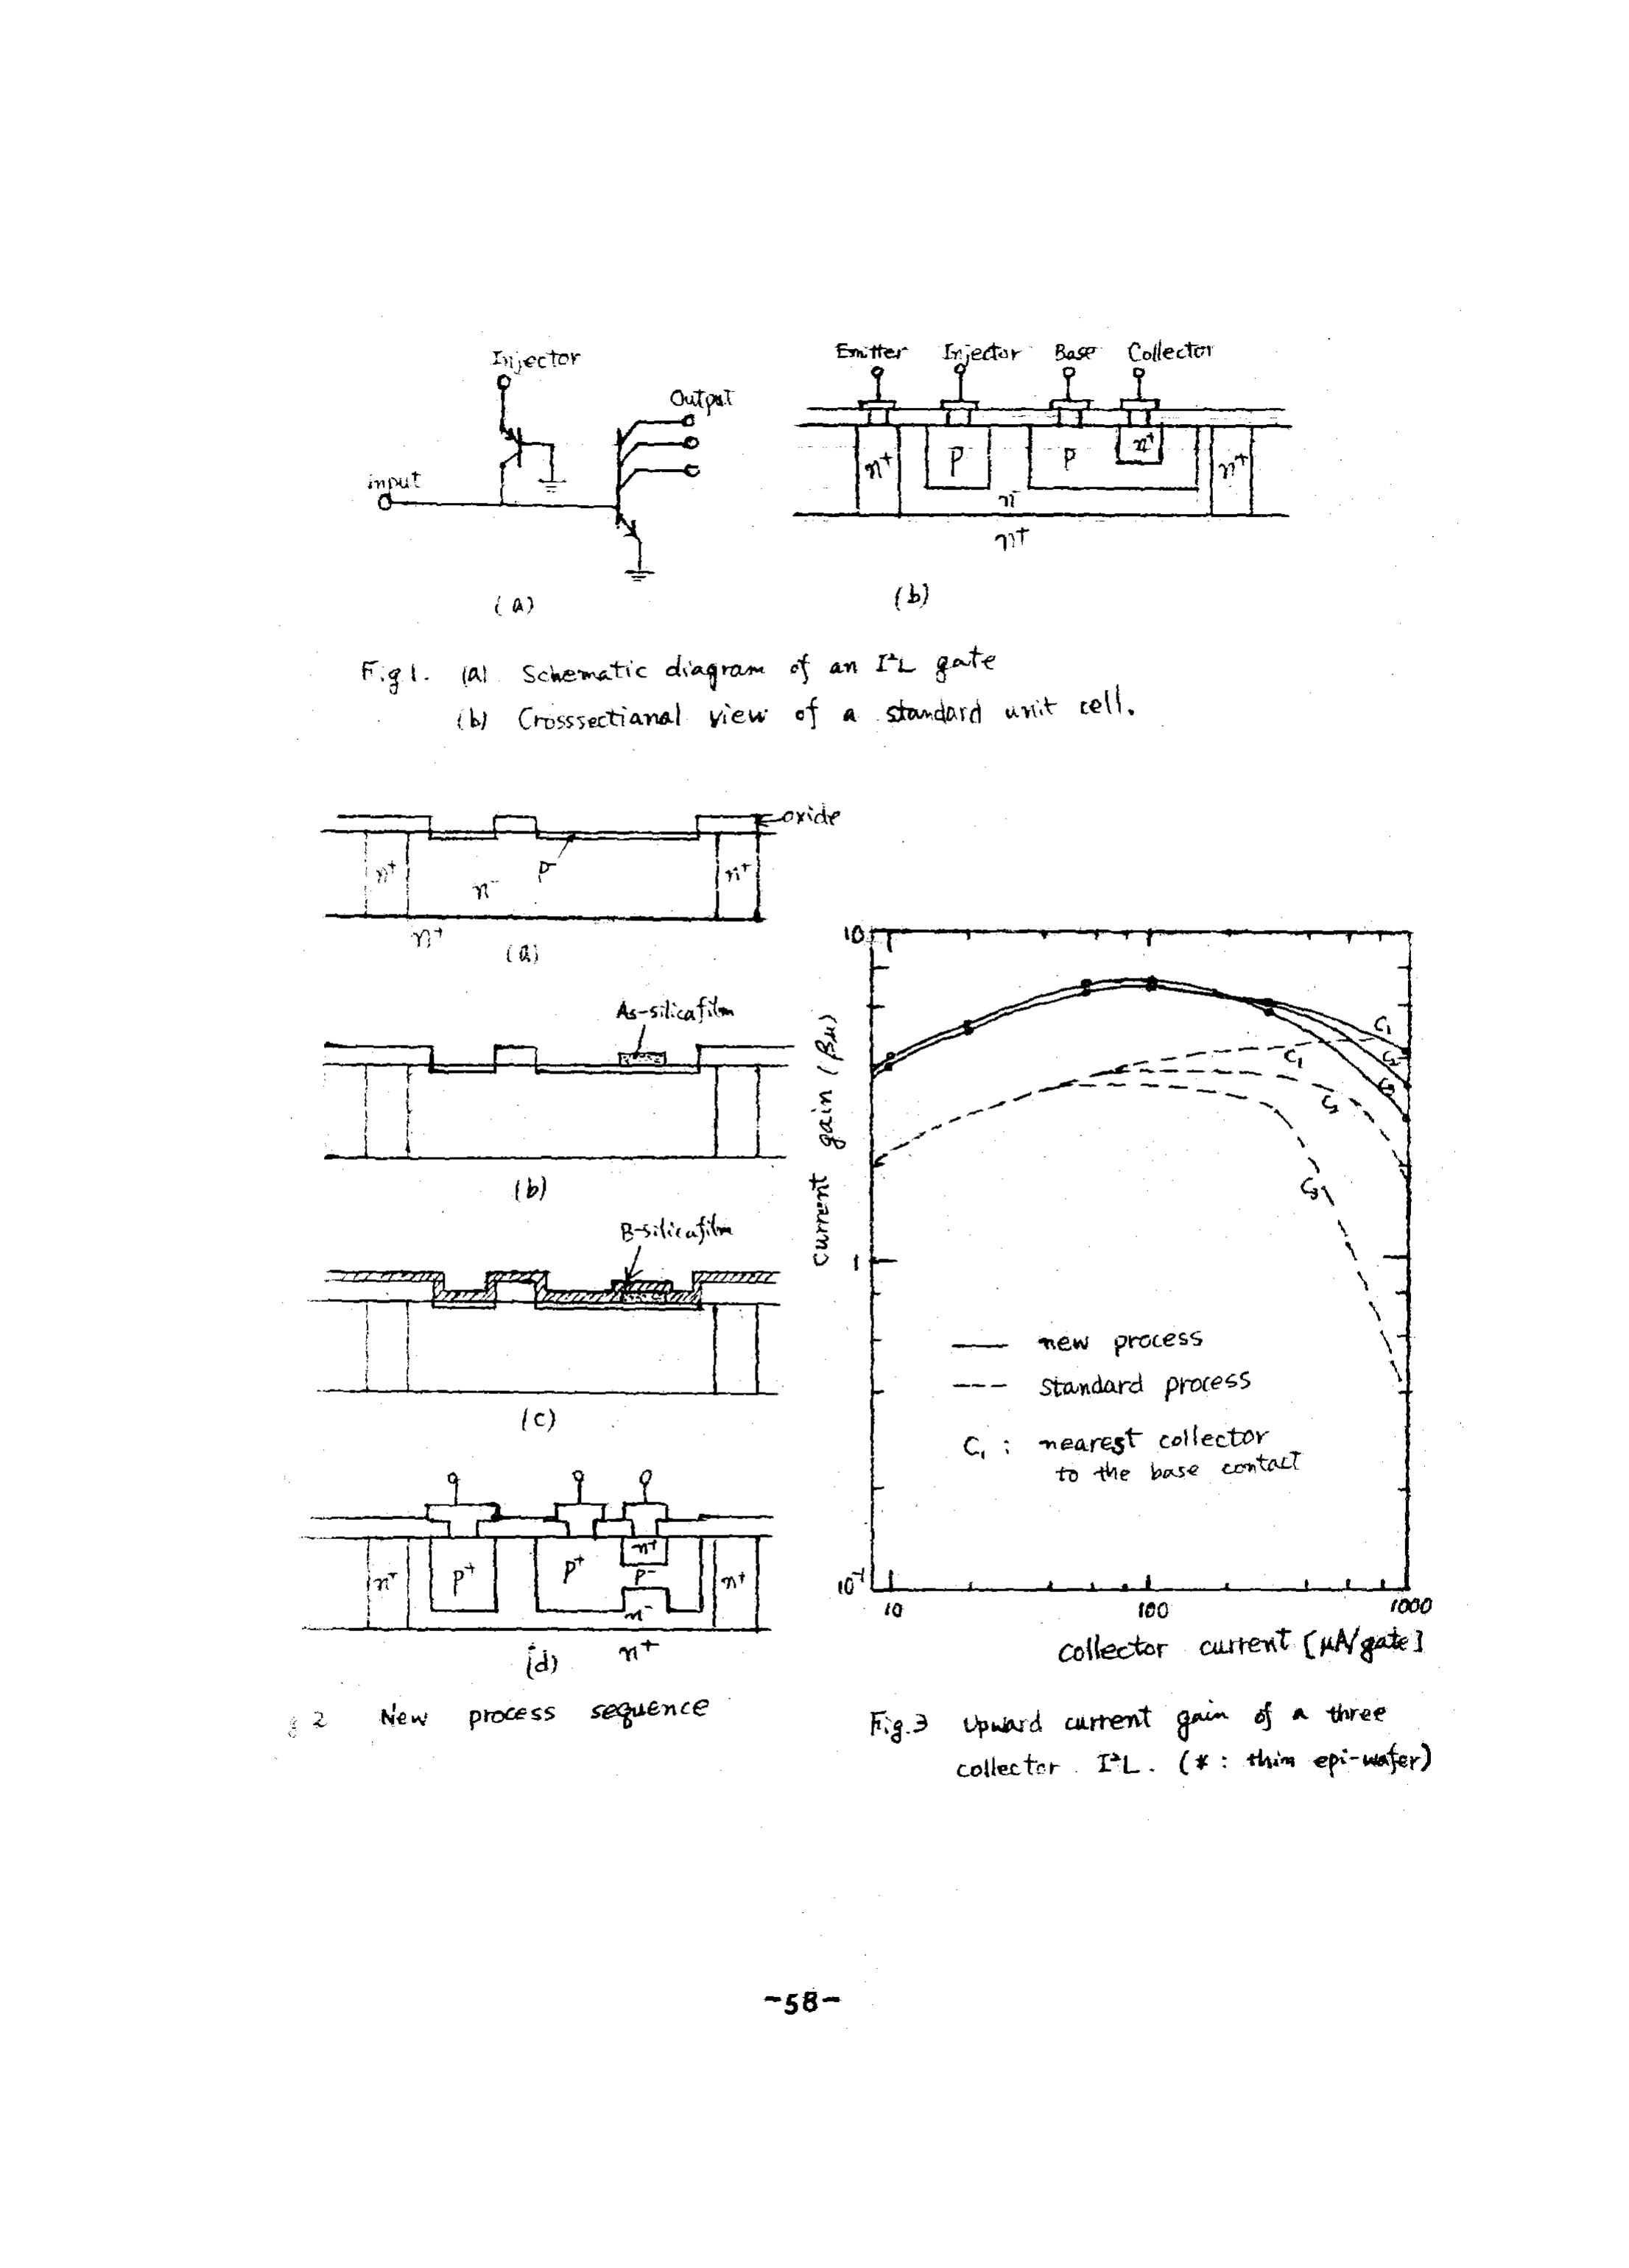 Injector
Output
input
(a)
Emitter Injector Base Collector
n⁺ p p n⁺ n⁺
n⁻
n⁺
(b)
Fig 1. (a) Schematic diagram of an I²L gate
(b) Crosssectianal view of a standard unit cell.
oxide
n⁺ n⁻ p⁻ n⁺
n⁺
(a)
As-silicafilm
(b)
B-silicafilm
(c)
n⁺ p⁺ p⁺ n⁺ n⁺
p⁻
n⁻
n⁺
(d)
2 New process sequence
10
1
10⁻¹
current gain (βu)
C₁
C₂
C₃
C₁
C₂
C₃
—— new process
--- standard process
C₁ : nearest collector
to the base contact
10 100 1000
collector current [μA/gate]
Fig.3 Upward current gain of a three
collector I²L. (* : thin epi-wafer)
-58-